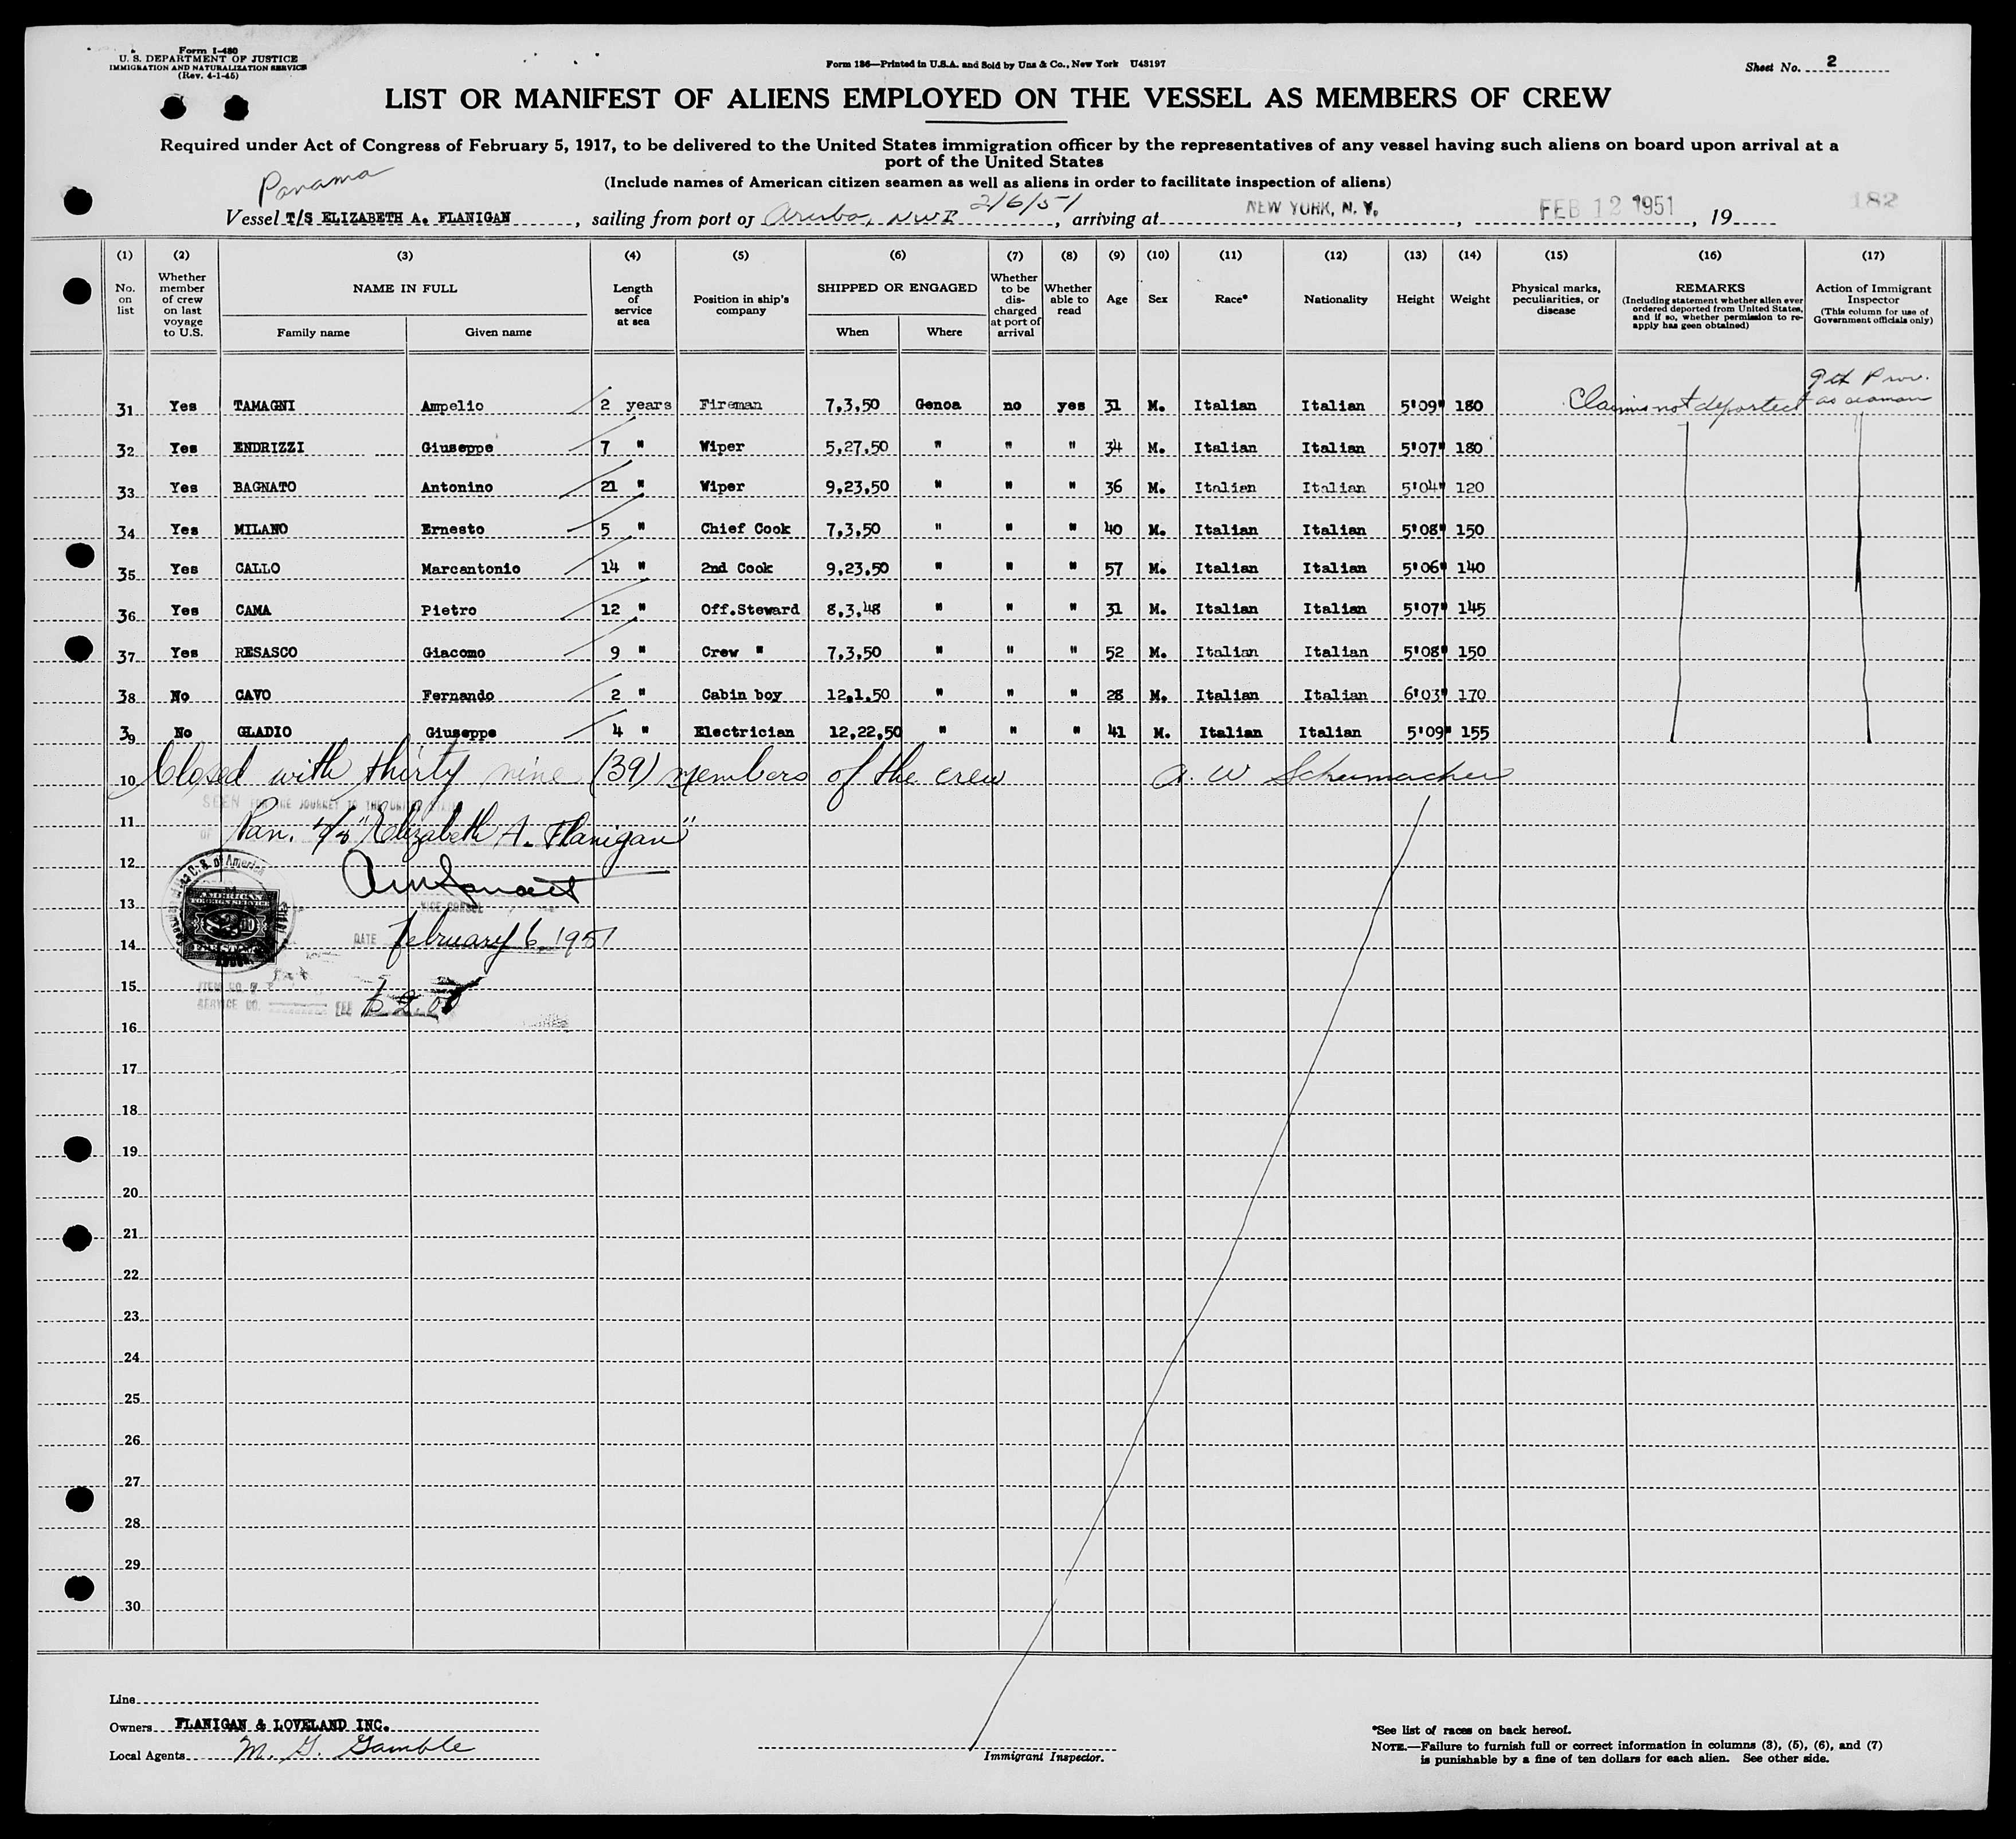 Form I-480
U. S. DEPARTMENT OF JUSTICE
IMMIGRATION AND NATURALIZATION SERVICE
(Rev. 4-1-45)
Form 186—Printed in U.S.A. and Sold by Unz & Co., New York U43197
Sheet No. 2
LIST OR MANIFEST OF ALIENS EMPLOYED ON THE VESSEL AS MEMBERS OF CREW
Required under Act of Congress of February 5, 1917, to be delivered to the United States immigration officer by the representatives of any vessel having such aliens on board upon arrival at a
port of the United States
(Include names of American citizen seamen as well as aliens in order to facilitate inspection of aliens)
Panama
Vessel T/S ELIZABETH A. FLANIGAN, sailing from port of Aruba, NWI 2/6/51, arriving at NEW YORK, N. Y., FEB 12 1951, 19 182
(1) (2) (3) (4) (5) (6) (7) (8) (9) (10) (11) (12) (13) (14) (15) (16) (17)
No. on list
Whether member of crew on last voyage to U.S.
NAME IN FULL
Family name Given name
Length of service at sea
Position in ship's company
SHIPPED OR ENGAGED
When Where
Whether to be discharged at port of arrival
Whether able to read
Age Sex Race* Nationality Height Weight
Physical marks, peculiarities, or disease
REMARKS
(Including statement whether alien ever ordered deported from United States, and if so, whether permission to re-apply has geen obtained)
Action of Immigrant Inspector
(This column for use of Government officials only)
31 Yes TAMAGNI Ampelio 2 years Fireman 7,3,50 Genoa no yes 31 M. Italian Italian 5'09" 180 Claims not deported 9th Prov. as seaman
32 Yes ENDRIZZI Giuseppe 7 " Wiper 5,27,50 " " " 34 M. Italian Italian 5'07" 180
33 Yes BAGNATO Antonino 21 " Wiper 9,23,50 " " " 36 M. Italian Italian 5'04" 120
34 Yes MILANO Ernesto 5 " Chief Cook 7,3,50 " " " 40 M. Italian Italian 5'08" 150
35 Yes CALLO Marcantonio 14 " 2nd Cook 9,23,50 " " " 57 M. Italian Italian 5'06" 140
36 Yes CAMA Pietro 12 " Off.Steward 8,3,48 " " " 31 M. Italian Italian 5'07" 145
37 Yes RESASCO Giacomo 9 " Crew " 7,3,50 " " " 52 M. Italian Italian 5'08" 150
38 No CAVO Fernando 2 " Cabin boy 12,1,50 " " " 28 M. Italian Italian 6'03" 170
39 No GLADIO Giuseppe 4 " Electrician 12,22,50 " " " 41 M. Italian Italian 5'09" 155
10 Closed with thirty nine (39) members of the crew A. W Schumacher
SEEN FOR THE JOURNEY TO THE UNITED STATES
11 Pan. T/S "Elizabeth A. Flanigan"
12
13 VICE CONSUL
14 DATE February 6, 1951
AMERICAN
FOREIGN SERVICE
15
SERVICE NO. FEE $2.00
16
17
18
19
20
21
22
23
24
25
26
27
28
29
30
Line
Owners FLANIGAN & LOVELAND INC.
Local Agents M. G. Gamble
Immigrant Inspector.
*See list of races on back hereof.
NOTE.—Failure to furnish full or correct information in columns (3), (5), (6), and (7)
is punishable by a fine of ten dollars for each alien. See other side.